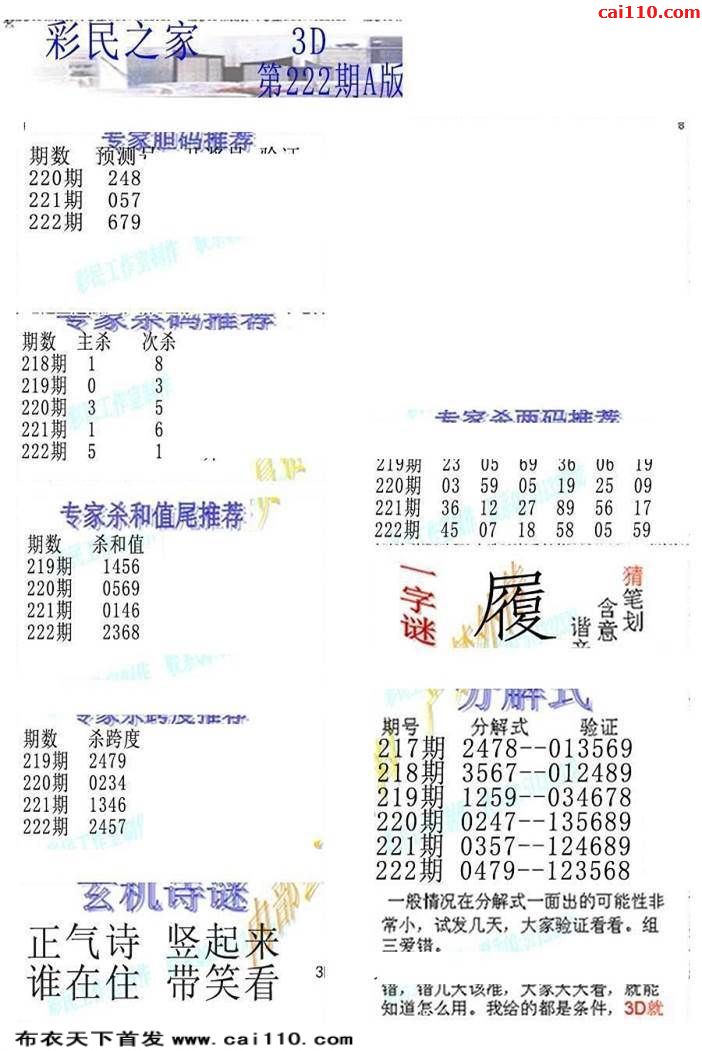 cai110.com
彩民之家 3D
第222期A版
专家胆码推荐
期数 预测号
220期 248
221期 057
222期 679
专家杀码推荐
期数 主杀 次杀
218期 1 8
219期 0 3
220期 3 5
221期 1 6
222期 5 1
专家杀和值尾推荐
期数 杀和值
219期 1456
220期 0569
221期 0146
222期 2368
专家杀跨度推荐
期数 杀跨度
219期 2479
220期 0234
221期 1346
222期 2457
玄机诗谜
正气诗 竖起来
谁在住 带笑看
专家杀两码推荐
219期 23 05 69 36 06 19
220期 03 59 05 19 25 09
221期 36 12 27 89 56 17
222期 45 07 18 58 05 59
一字谜
履
猜笔划
含意
谐音
分解式
期号 分解式 验证
217期 2478--013569
218期 3567--012489
219期 1259--034678
220期 0247--135689
221期 0357--124689
222期 0479--123568
一般情况在分解式一面出的可能性非
常小，试发几天，大家验证看看。组
三爱错。
错，错几天该准，大家天天看，就能
知道怎么用。我给的都是条件，3D就
布衣天下首发 www.cai110.com